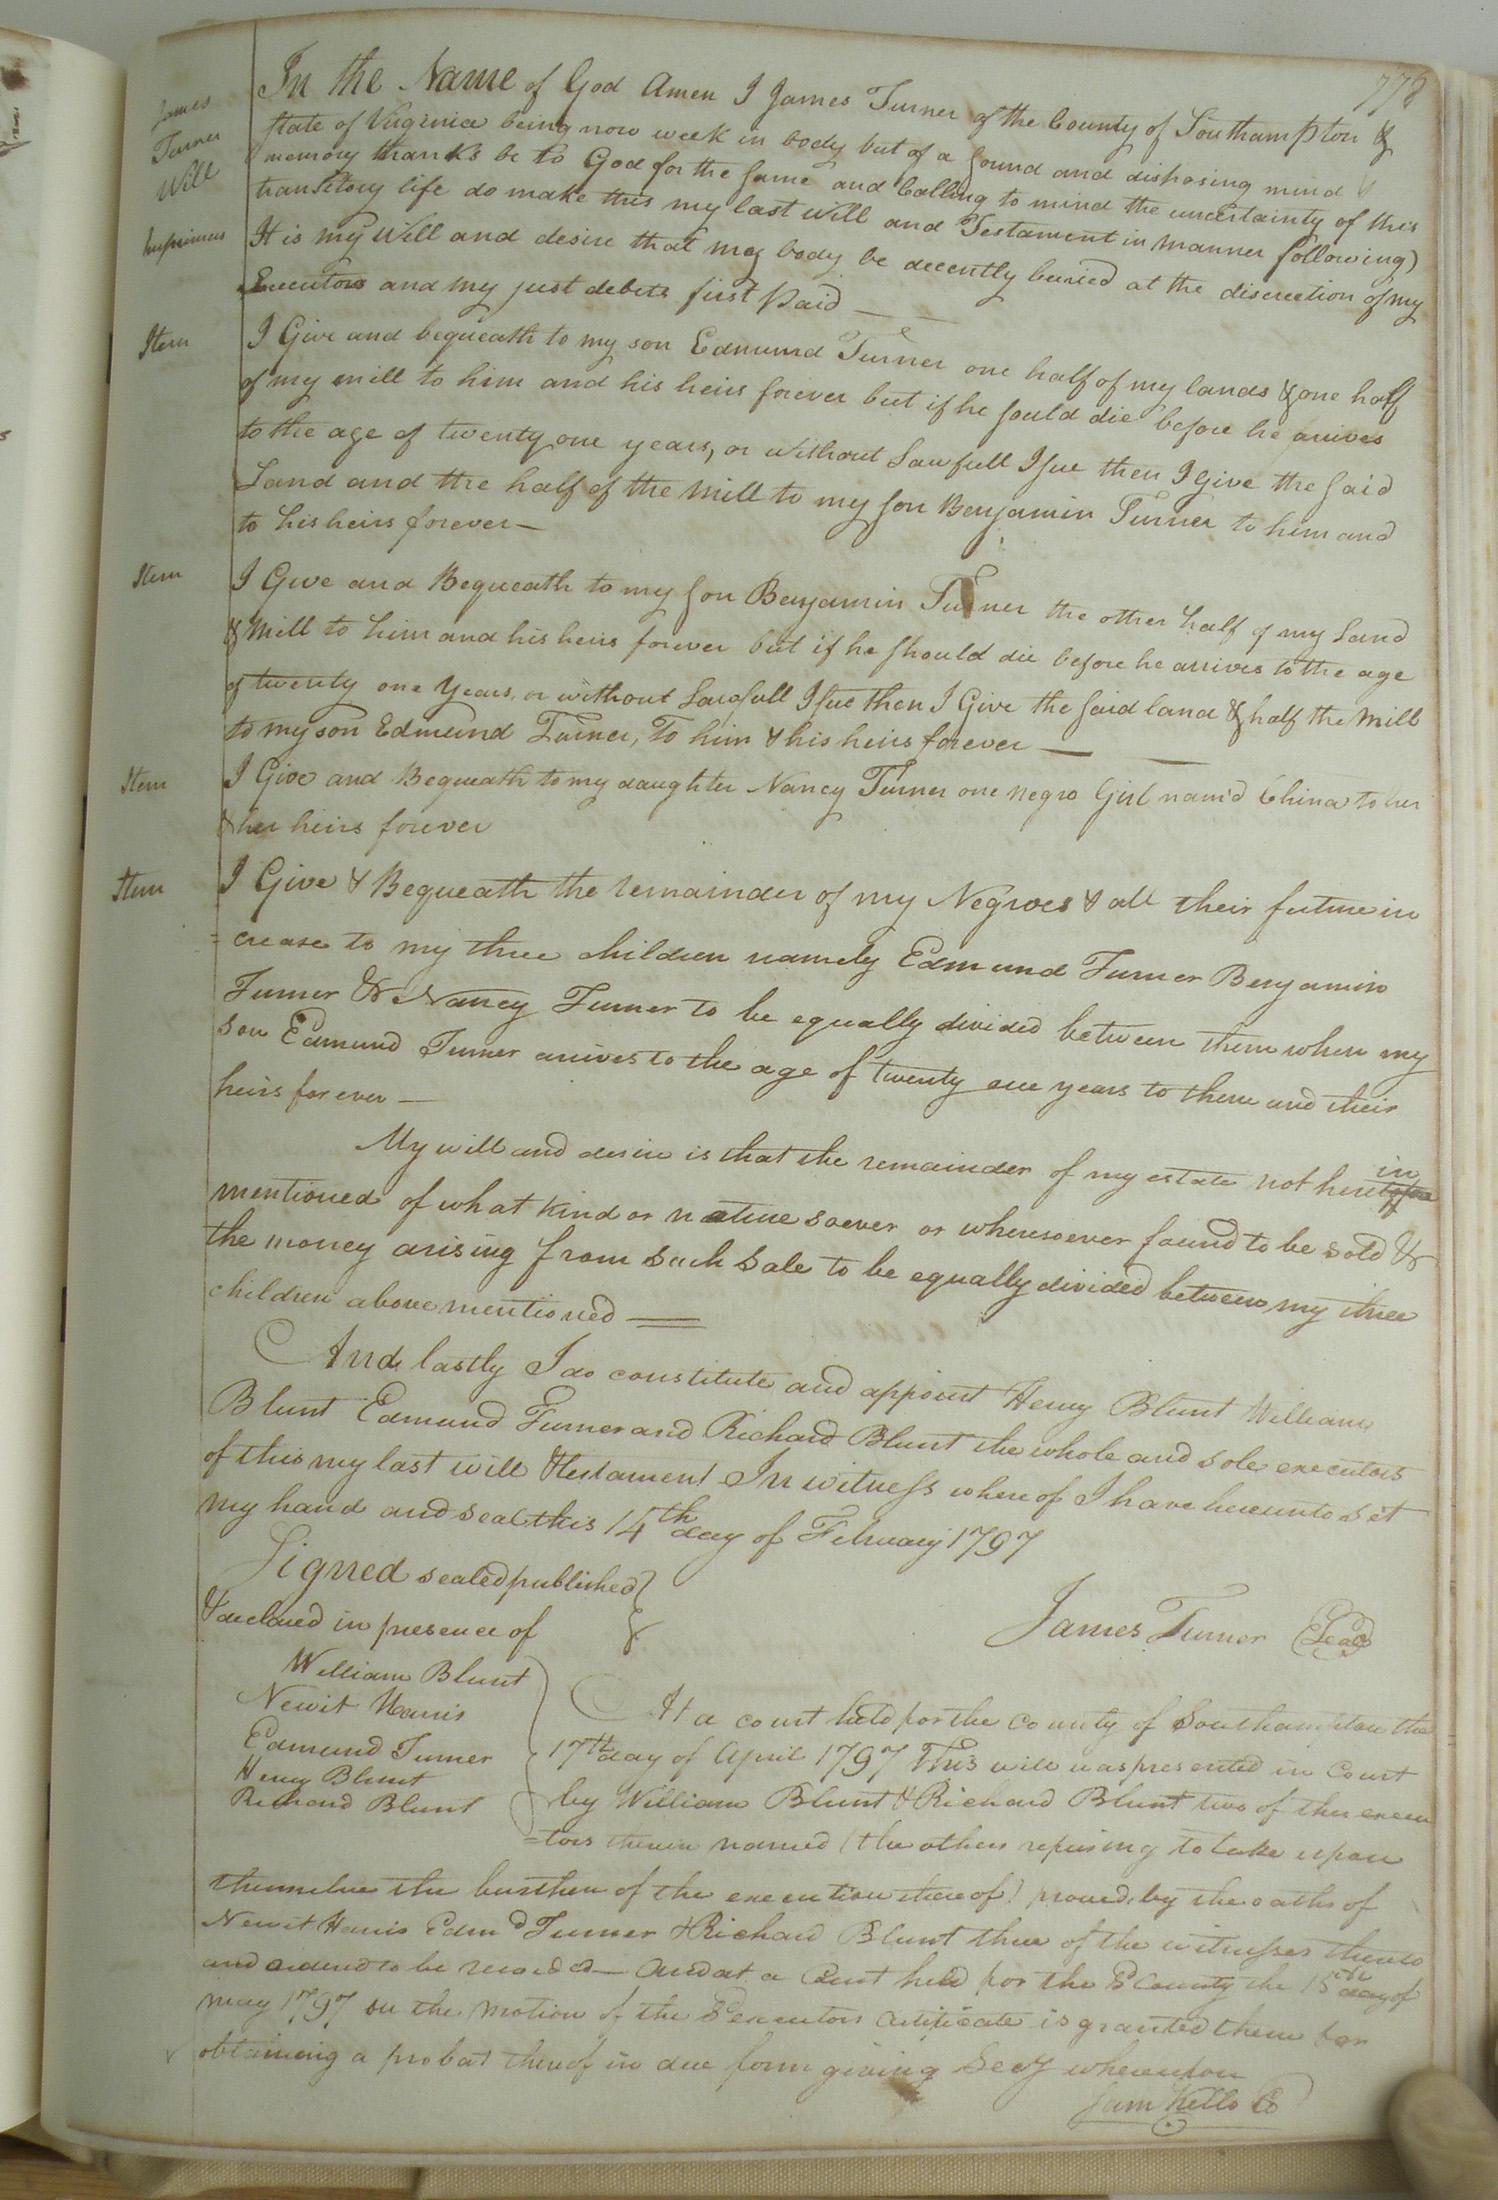 778
James
Turner
Will
In the Name of God Amen I James Turner of the County of Southampton &
State of Virginia being now week in body but of a sound and disposing mind &
memory thanks be to God for the same and Calling to mind the uncertainty of this
transitory life do make this my last will and Testament in manner following)
Imprimis It is my Will and desire that my body be decently buried at the discretion of my
Executors and my just debts first paid —
Item I Give and bequeath to my son Edmund Turner one half of my lands & one half
of my mill to him and his heirs forever but if he sould die before he arrives
to the age of twenty one years, or without Lawfull Issue then I Give the said
Land and the half of the Mill to my son Benjamin Turner to him and
to his heirs forever—
Item I Give and Bequeath to my son Benjamin Turner the other half of my Land
& Mill to him and his heirs forever but if he should die before he arrives to the age
of twenty one Years, or without Lawfull Issue then I Give the said land & half the Mill
to my son Edmund Turner, To him & his heirs forever —
Item I Give and Bequeath to my daughter Nancy Turner one negro Girl nam'd China to her
& her heirs forever
Item I Give & Bequeath the remainder of my Negroes & all their future in
=crease to my three children namely Edmund Turner Benjamin
Turner & Nancy Turner to be equally divided between them when my
son Edmund Turner arives to the age of twenty one years to them and their
heirs forever—
My will and desire is that the remainder of my estate not herein
mentioned of what kind or nature soever or wheresoever found to be sold &
the money arising from such sale to be equally divided between my three
children above mentioned =
And lastly I do constitute and appoint Henry Blunt William
Blunt Edmund Turner and Richard Blunt the whole and sole executors
of this my last will & testament In witness whereof I have hereunto set
my hand and seal this 14th day of February 1797
Signed sealed published }
& declared in presence of }
James Turner Seal
William Blunt
Newit Harris
Edmund Turner
Henry Blunt
Richard Blunt
At a court held for the County of Southampton the
17th day of April 1797 This will was presented in Court
by William Blunt & Richard Blunt two of the execu
=tors therein named (the others refusing to take upon
themselves the burthen of the execution thereof) proved by the oaths of
Newit Harris Edmd Turner & Richard Blunt three of the witnesses thereto
and ordered to be recorded— And at a Court held for the sd County the 15th day of
may 1797 on the motion of the sd executors certificate is granted them for
obtaining a probat thereof in due form giving Secy whereupon
Sam Kello Cc